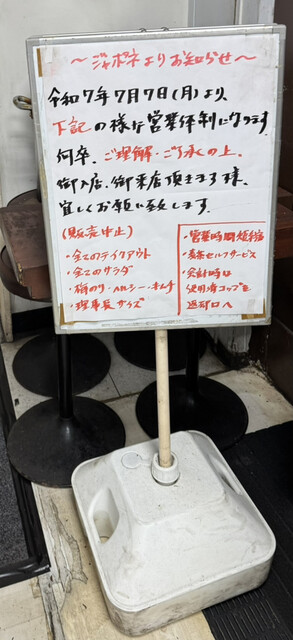 ～ジャポネよりお知らせ～
令和7年7月7日(月)より、
下記の様な営業体制になります
何卒、ご理解・ご了承の上、
御入店、御来店頂きます様、
宜しくお願い致します。
(販売中止)
・全てのテイクアウト
・全てのサラダ
・梅のり・ヘルシー・キムチ
・理事長サイズ
・営業時間短縮
・麦茶セルフサービス
・会計時は
使用済コップを
返却口へ